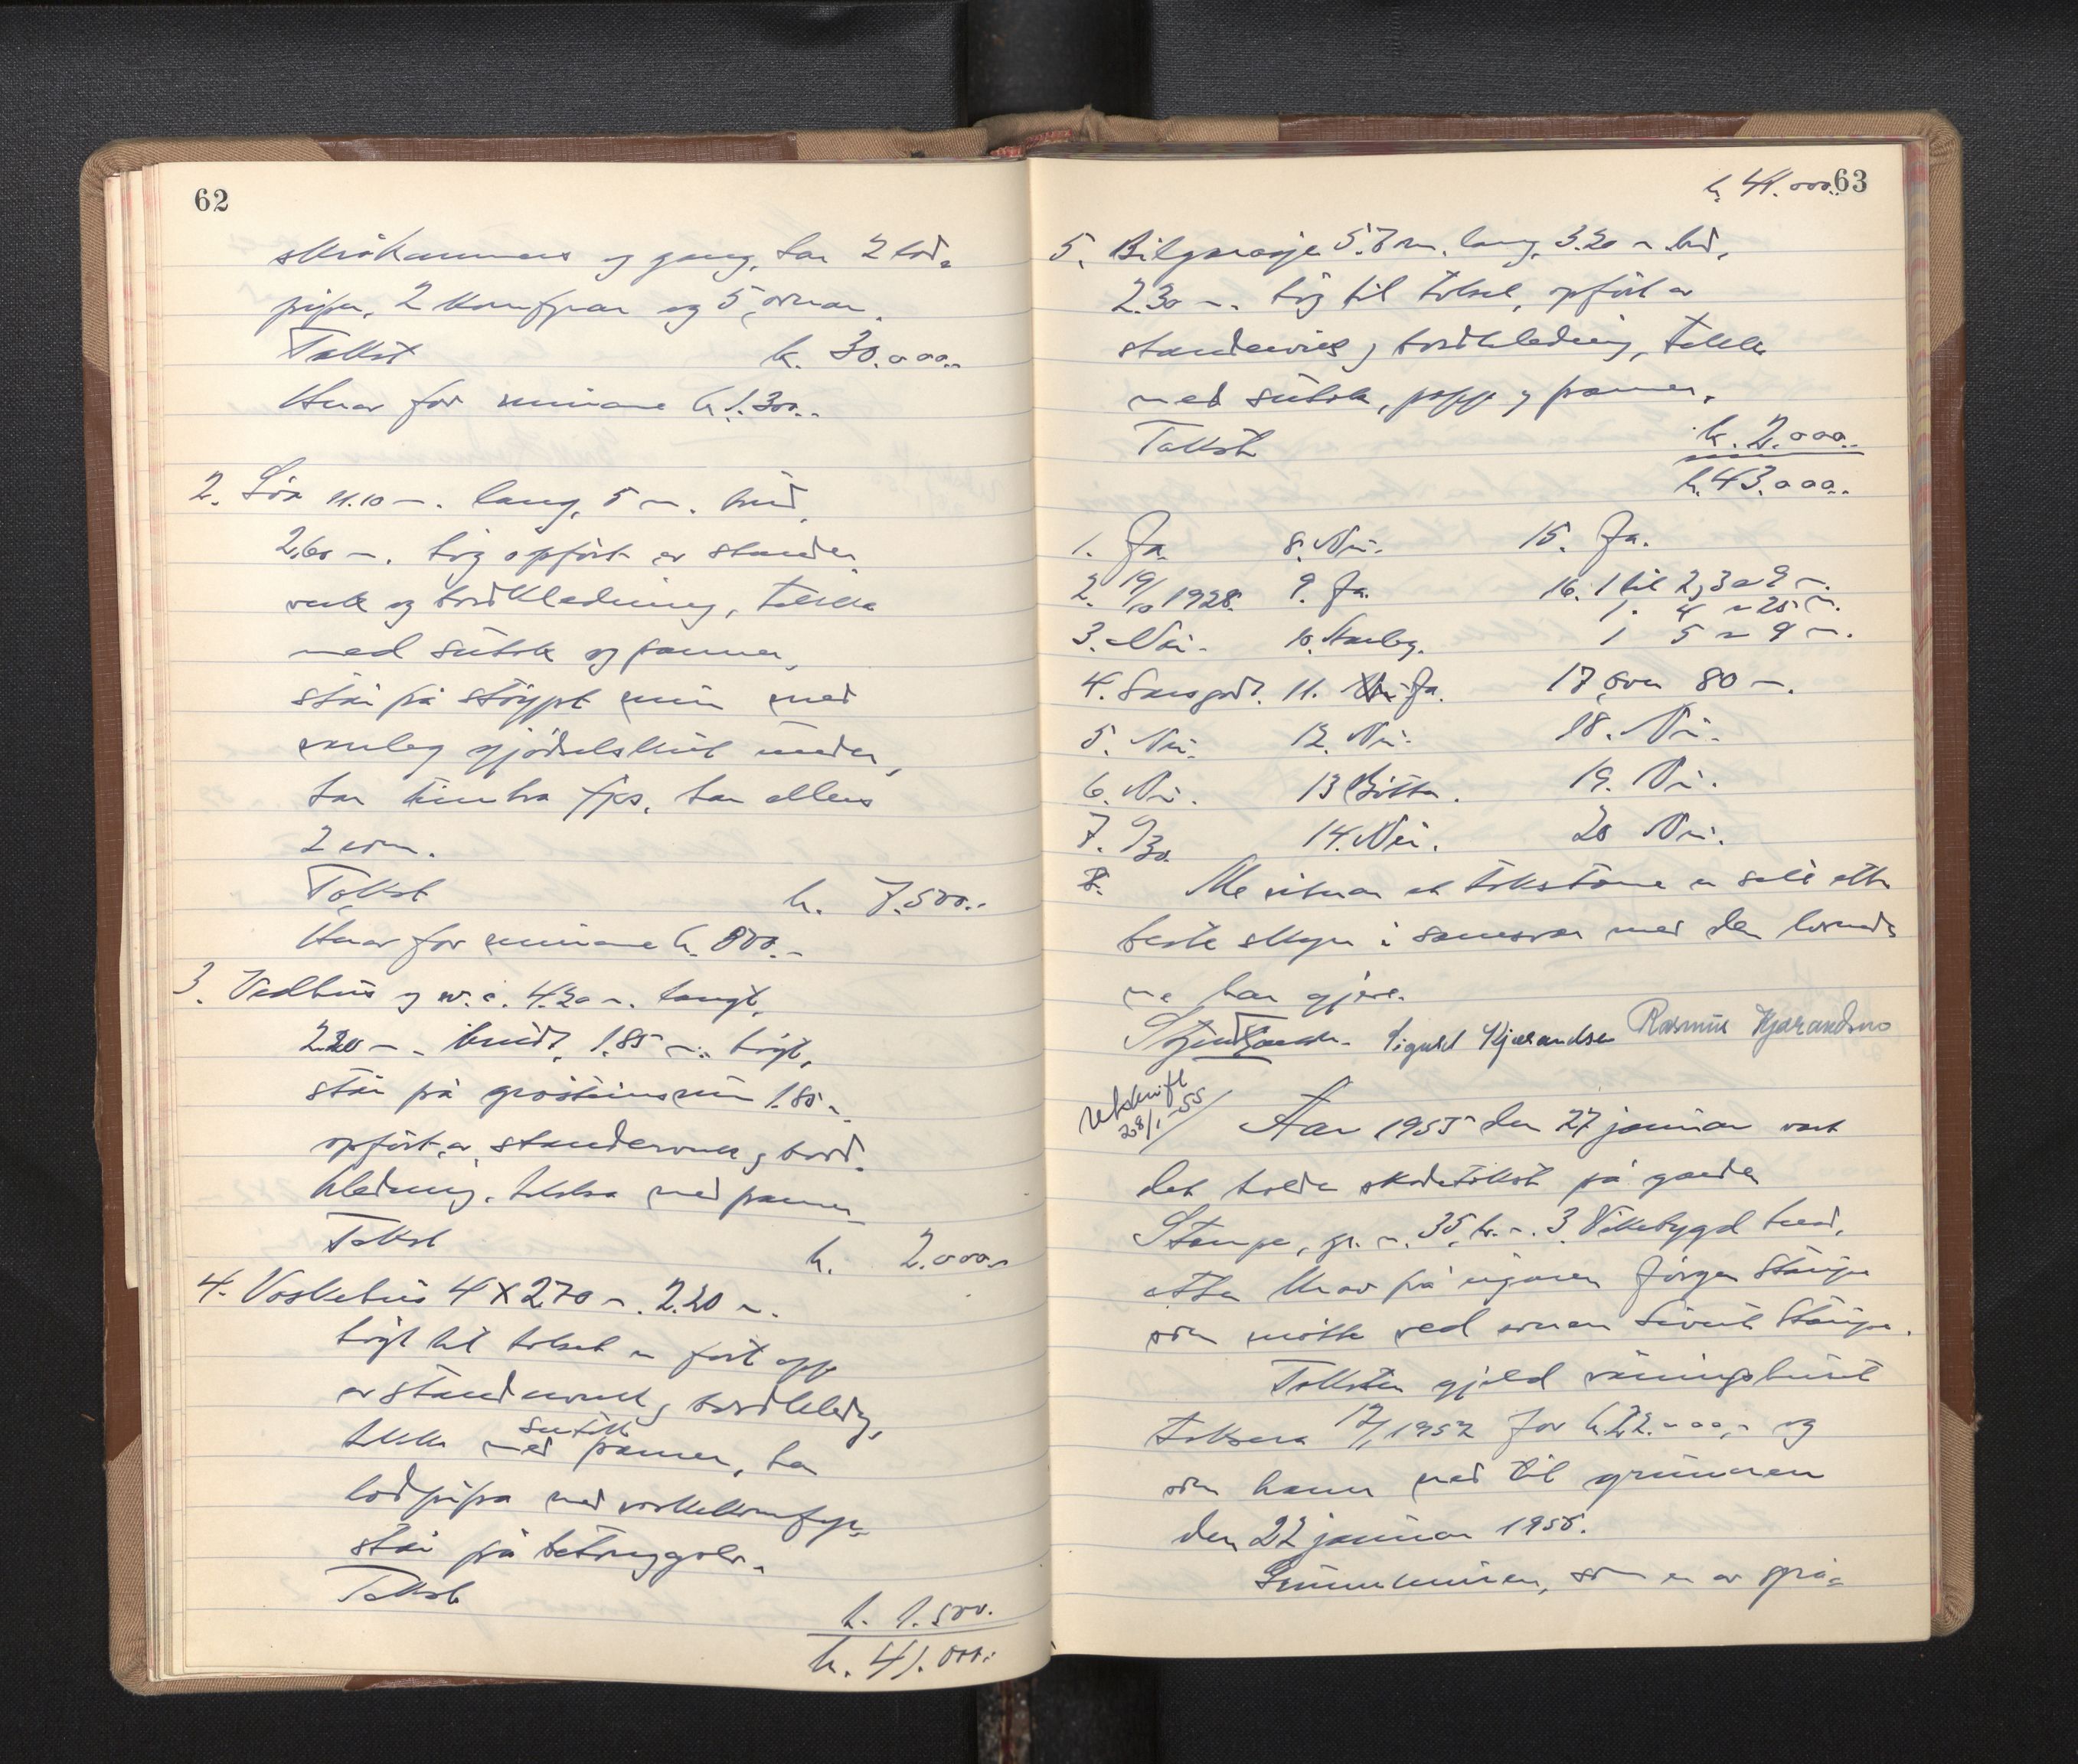 62
skråkammers og gang, har 2 lod-
pipa, 2 komfyrar og 5 omnar.
Takst k. 30.000.-
Herav for murane k 1.300.-
2. Löa 11.10 m. lang, 5 m. breid,
2.60 m. høg oppført av stender-
verk og bordkledning, tekka
med sutak og panner,
står på støypt mur med
vanleg gjødselskut under,
har fjos, har ellers
2 rom.
Takst k. 7.500.-
Herav for murane k. 800.-
3. Vedhus og w.c. 4.20 m. langt,
2.20 m. breidt, 1.85 m. høgt,
står på gråsteinsmur 1.80 m.
oppført av stenderverk og bord-
kledning, tekka med panner
Takst k. 2.000.-
4. Vaskehus 4 X 2.70 m. 2.20 m.
høgt til halset er ført opp
av stenderverk og bordkledn,
sutak
tekka med panner, har
lodpipa med vaskekomfyr
står på betonggolv.
Takst
k. 1.500.
k. 41.000.-
k. 41.000.- 63
5. Bilgarasje 5.7 m. lang, 3.20 m. breid,
2.30 m. høg til halset, oppført av
stenderverk og bordkledning, tekka
med sutak, papp og panner.
Takst k. 2.000.-
k. 43.000.-
1. Ja. 8. Nei. 15. Ja.
2. 19/10 1928. 9. Ja. 16. 1 til 2, 3 a 9 m.
1. 4 a 25 m.
3. Nei. 10. Vanleg. 1 5 a 9 m.
4. Sers godt. 11. Ja. 17. over 80 m.
5. Nei. 12. Nei. 18. Nei.
6. Nei. 13 Bötta. 19. Nei.
7. 9/30. 14. Nei. 20 Nei.
8. Me vitnar at takstane er sett etter
beste skyn i samsvar med den lovnad
me har gjeve.
Sigurd Kjærandsen Rasmus Kjærandsen
Utskrift
28/1-55
Aar 1955 den 27 januar vart
det halde skadetakst på garden
Stange, gr. n. 35, br. n. 3 Vikebygd herad,
etter krav frå eigaren Jørgen Stange
som møtte ved sonen Sivert Stange.
Taksten gjeld våningshuset
taksera 17/1 1952 for k. 22.000,- og
som brann ned til grunnen
den 22 januar 1955.
Grunnmuren, som er av grå-